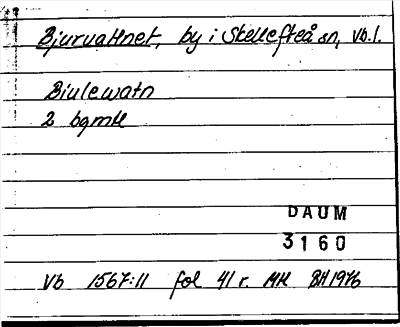 Bjurvattnet, by i Skellefteå sn, Vb. l.
Biulewatn
2 bgmtl
DAUM
3160
Vb 1567:11 fol 41 r. MH BH 1976